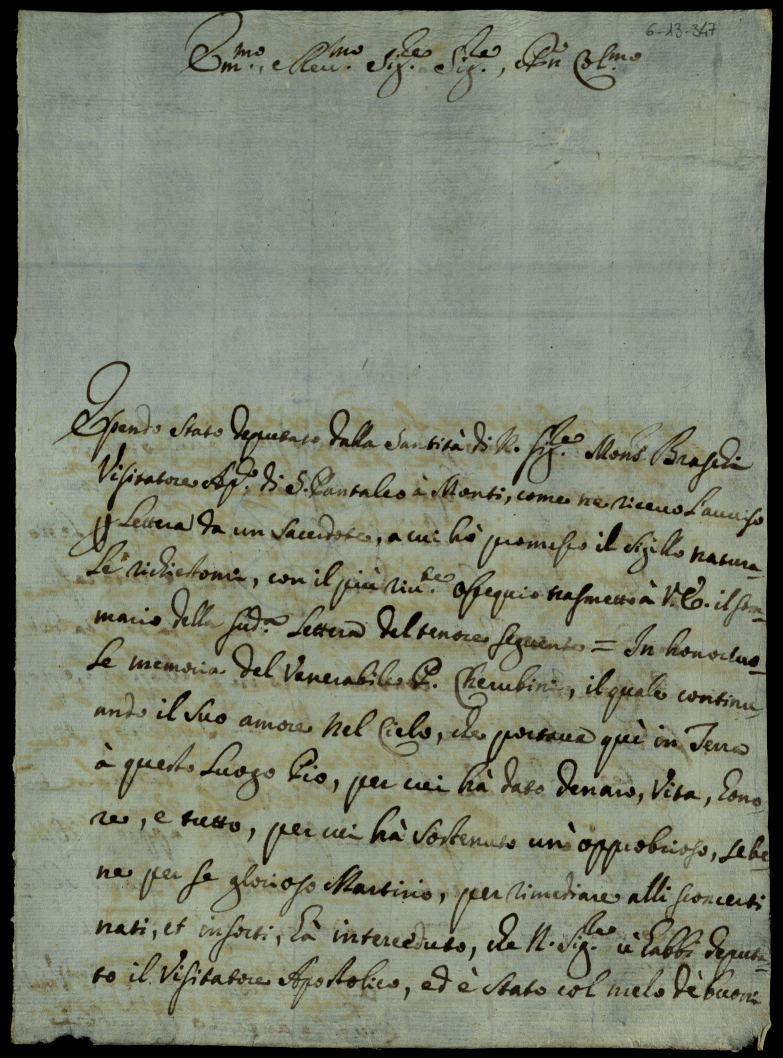 6-13-347
Em.mo, e Rev.mo Sig.re Sig.re, e Pñ Col.mo
Essendo stato deputato dalla Santità di N. Sig.re Mons. Braschi
Visitatore Ap.o di S. Pantaleo à Monti, come ne ricevo l'avviso
p Lettera da un Sacerdote, a cui hò promesso il sigillo natura-
le richiestomi, con il più riv.te ossequio trasmetto à V. E. il som-
mario della sud.a Lettera del tenore seguente = In honor suo
le memoria del Venerabile P. Cherubini, il quale continu-
ando il suo amore nel Cielo, che portava quì in Terra
à questo Luogo Pio, per cui hà dato denaro, Vita, hono
re, e tutto, per cui hà sostenuto un' opprobrioso, sebe
ne per se glorioso Martirio, per rimediare alli sconcerti
nati, et insorti, hà interceduto, che N. Sig.re ci habbi deputa-
to il Visitatore Apostolico, ed è stato col melo dè buoni